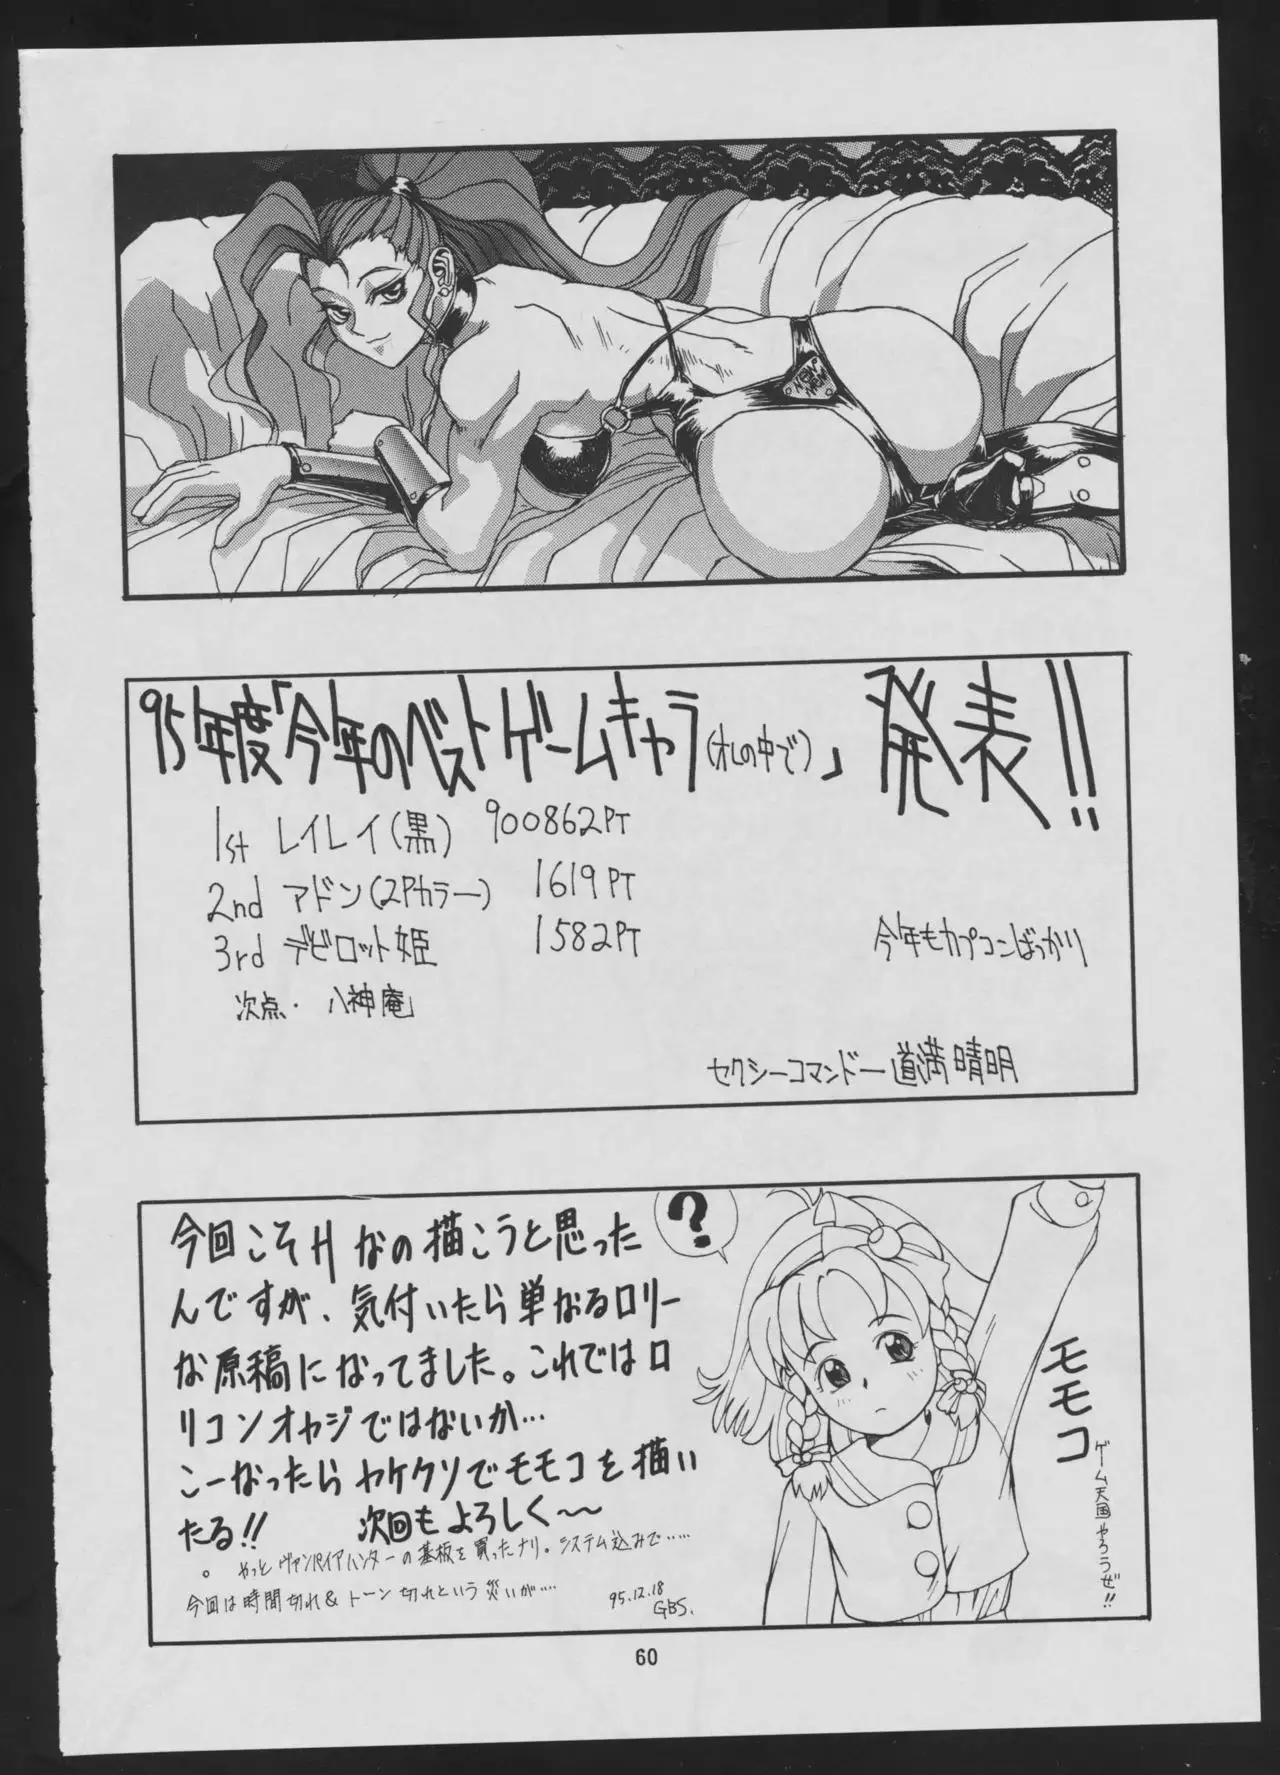 95年度「今年のベストゲームキャラ(オレの中で)」 発表!!
1st レイレイ(黒) 900862PT
2nd アドン(2Pカラー) 1619PT
3rd デビロット姫 1582PT
今年もカプコンばっかり
次点・八神庵
セクシーコマンドー道満晴明
?
今回こそHなの描こうと思った
んですが、気付いたら単なるロリー
な原稿になってました。これではロ
リコンオヤジではないか…
こーなったらヤケクソでモモコを描い
たる!! 次回もよろしく〜
。やっとヴァンパイアハンターの基板を買ったナリ。システム込みで……
今回は時間切れ&トーン切れという災いが…
95.12.18
GBS.
モモコ
ゲーム天国やろうぜ!!
60